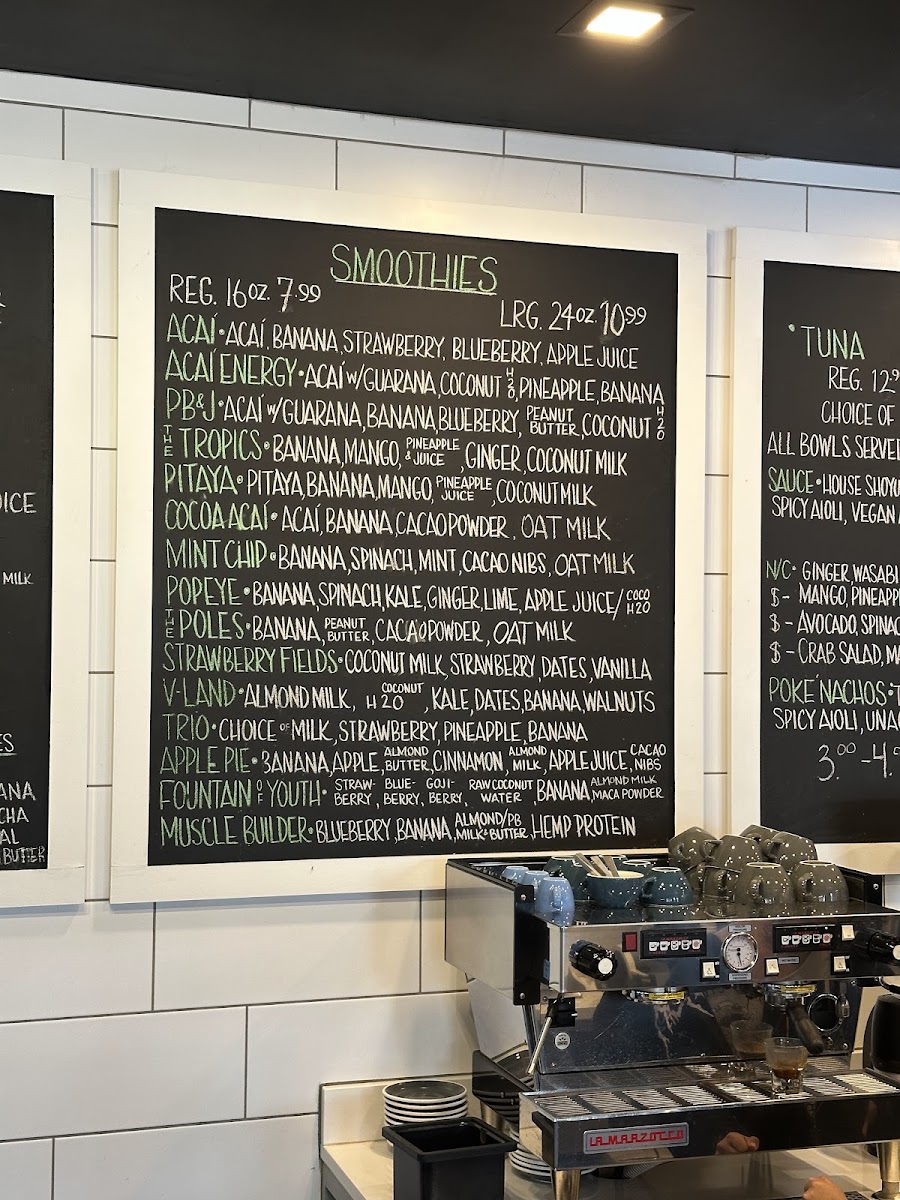 SMOOTHIES
REG. 16oz. 7.99
LRG. 24oz. 10.99
ACAÍ • ACAÍ, BANANA, STRAWBERRY, BLUEBERRY, APPLE JUICE
ACAÍ ENERGY • ACAÍ w/GUARANA, COCONUT H2O, PINEAPPLE, BANANA
PB&J • ACAÍ w/GUARANA, BANANA, BLUEBERRY, PEANUT BUTTER, COCONUT H2O
THE TROPICS • BANANA, MANGO, PINEAPPLE & JUICE, GINGER, COCONUT MILK
PITAYA • PITAYA, BANANA, MANGO, PINEAPPLE JUICE, COCONUT MILK
COCOA ACAÍ • ACAÍ, BANANA, CACAO POWDER, OAT MILK
MINT CHIP • BANANA, SPINACH, MINT, CACAO NIBS, OAT MILK
POPEYE • BANANA, SPINACH, KALE, GINGER, LIME, APPLE JUICE/COCO H2O
THE POLES • BANANA, PEANUT BUTTER, CACAO POWDER, OAT MILK
STRAWBERRY FIELDS • COCONUT MILK, STRAWBERRY, DATES, VANILLA
V-LAND • ALMOND MILK, COCONUT H2O, KALE, DATES, BANANA, WALNUTS
TRIO • CHOICE OF MILK, STRAWBERRY, PINEAPPLE, BANANA
APPLE PIE • BANANA, APPLE, ALMOND BUTTER, CINNAMON, ALMOND MILK, APPLE JUICE, CACAO NIBS
FOUNTAIN OF YOUTH • STRAW-BERRY, BLUE-BERRY, GOJI-BERRY, RAW COCONUT WATER, BANANA, ALMOND MILK, MACA POWDER
MUSCLE BUILDER • BLUEBERRY, BANANA, ALMOND/PB MILK & BUTTER, HEMP PROTEIN
MILK
BUTTER
• TUNA
REG. 12.9
CHOICE OF
ALL BOWLS SERVE
SAUCE • HOUSE SHOYU
SPICY AIOLI, VEGAN
N/C • GINGER, WASABI
$ - MANGO, PINEAPP
$ - AVOCADO, SPINAC
$ - CRAB SALAD, M
POKE NACHOS •
SPICY AIOLI, UNA
3.00 - 4.
LA MARZOCCO